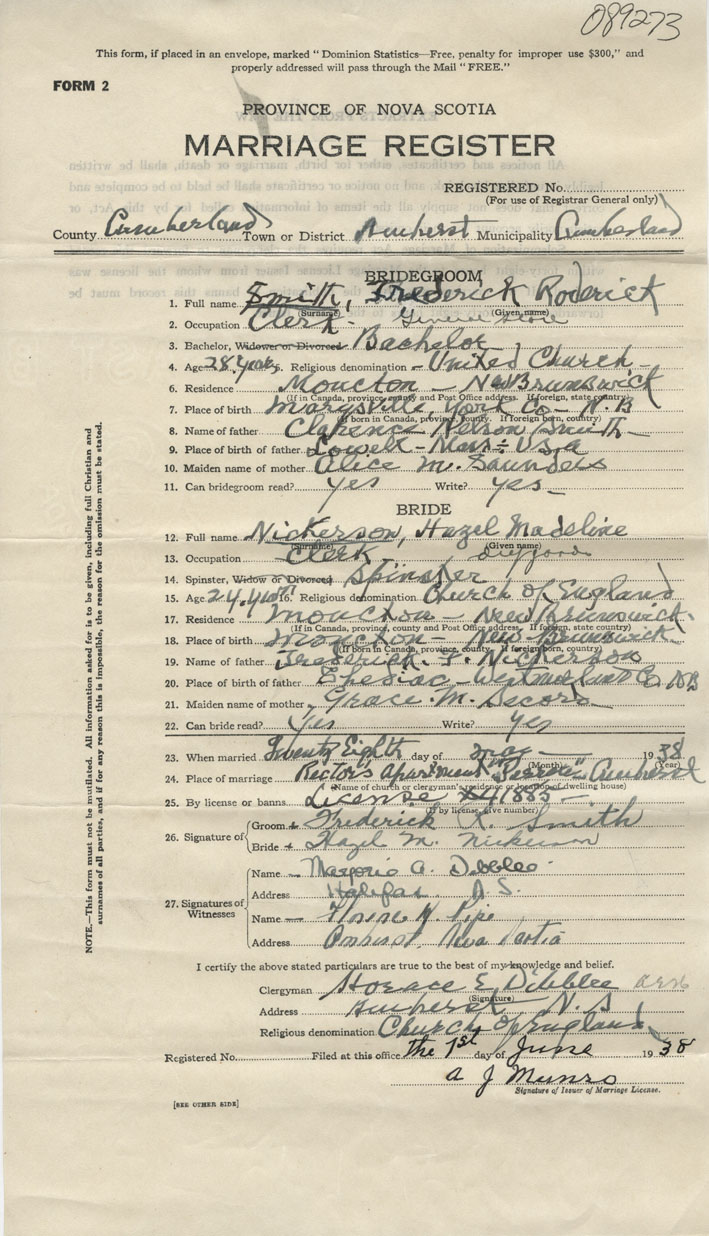 089273
This form, if placed in an envelope, marked "Dominion Statistics—Free, penalty for improper use $300," and
properly addressed will pass through the Mail "FREE."
FORM 2
PROVINCE OF NOVA SCOTIA
MARRIAGE REGISTER
REGISTERED No.
(For use of Registrar General only)
County Cumberland Town or District Amherst Municipality Cumberland
BRIDEGROOM
1. Full name Smith, Frederick Roderick
(Surname) (Given name)
2. Occupation Clerk - General Store
3. Bachelor, Widower or Divorced Bachelor
4. Age 28 years 5. Religious denomination - United Church
6. Residence Moncton - New Brunswick
(If in Canada, province, county and Post Office address. If foreign, state country)
7. Place of birth Marysville, York Co - N.B
(If born in Canada, province, county. If foreign born, country)
8. Name of father Clarence Nelson Smith
9. Place of birth of father Lowell - Mass - U.S.A
10. Maiden name of mother Alice M. Saunders
11. Can bridegroom read? yes Write? yes
BRIDE
12. Full name Nickerson, Hazel Madeline
(Surname) (Given name)
13. Occupation Clerk
14. Spinster, Widow or Divorced Spinster
15. Age 24 years 16. Religious denomination Church of England
17. Residence Moncton - New Brunswick
(If in Canada, province, county and Post Office address. If foreign, state country)
18. Place of birth Moncton - New Brunswick
(If born in Canada, province, county. If foreign born, country)
19. Name of father Frederick. F. Nickerson
20. Place of birth of father Westmorland Co NB
21. Maiden name of mother Grace M.
22. Can bride read? Yes Write? Yes
23. When married Twenty Eighth day of May 1938
(Month) (Year)
24. Place of marriage Rector's Apartment Amherst
(Name of church or clergyman's residence or location of dwelling house)
25. By license or banns License 41883
(If by license, give number)
26. Signature of
Groom + Frederick R. Smith
Bride + Hazel M. Nickerson
27. Signatures of Witnesses
Name — Marjorie A. Dibblee
Address Halifax N.S.
Name — Florence H. Pipe
Address Amherst Nova Scotia
I certify the above stated particulars are true to the best of my knowledge and belief.
Clergyman Horace E. Dibblee
(Signature)
Address Amherst N.S
Religious denomination Church of England
Registered No. Filed at this office the 1st day of June 1938
A J Munro
Signature of Issuer of Marriage License.
[SEE OTHER SIDE]
NOTE.—This form must not be mutilated. All information asked for is to be given, including full Christian and
surnames of all parties, and if for any reason this is impossible, the reason for the omission must be stated.